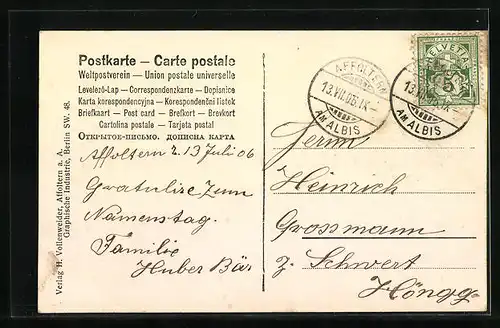 Postkarte — Carte postale
Weltpostverein — Union postale universelle
Levelező-Lap — Correspondenzkarte — Dopisnice
Karta korespondencyjna — Korespondenční lístek
Briefkaart — Post card — Brefkort — Brevkort
Cartolina postale — Tarjeta postal
Открытое-письмо. дописна карта
Affoltern a. 13 Juli 06
Gratulire Zum
Namenstag.
Familie
Huber Bär
Verlag H. Vollenweider, Affoltern a. A.
Graphische Industrie, Berlin SW. 48.
AFFOLTERN
13.VII.06.IX–
AM ALBIS
HELVETIA
5
13.VII
IX–
AM ALBIS
Herrn
Heinrich
Grossmann
z. Schwert
Höngg